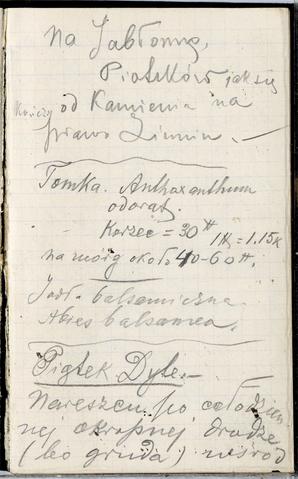 na Jabłonnę,
Piotrków jak się
kończy od Kamienia na
prawo
Tomka. Anthoxanthum
odorat.
Korzec = 30 tt 1 = 1.15 K
na mórg około 40-60 tt.
Jodła balsamiczna
Abies balsamea.
Piątek Dyle.-
Nareszcie po całodzien
nej okropnej drodze
(bo gruda) wśród